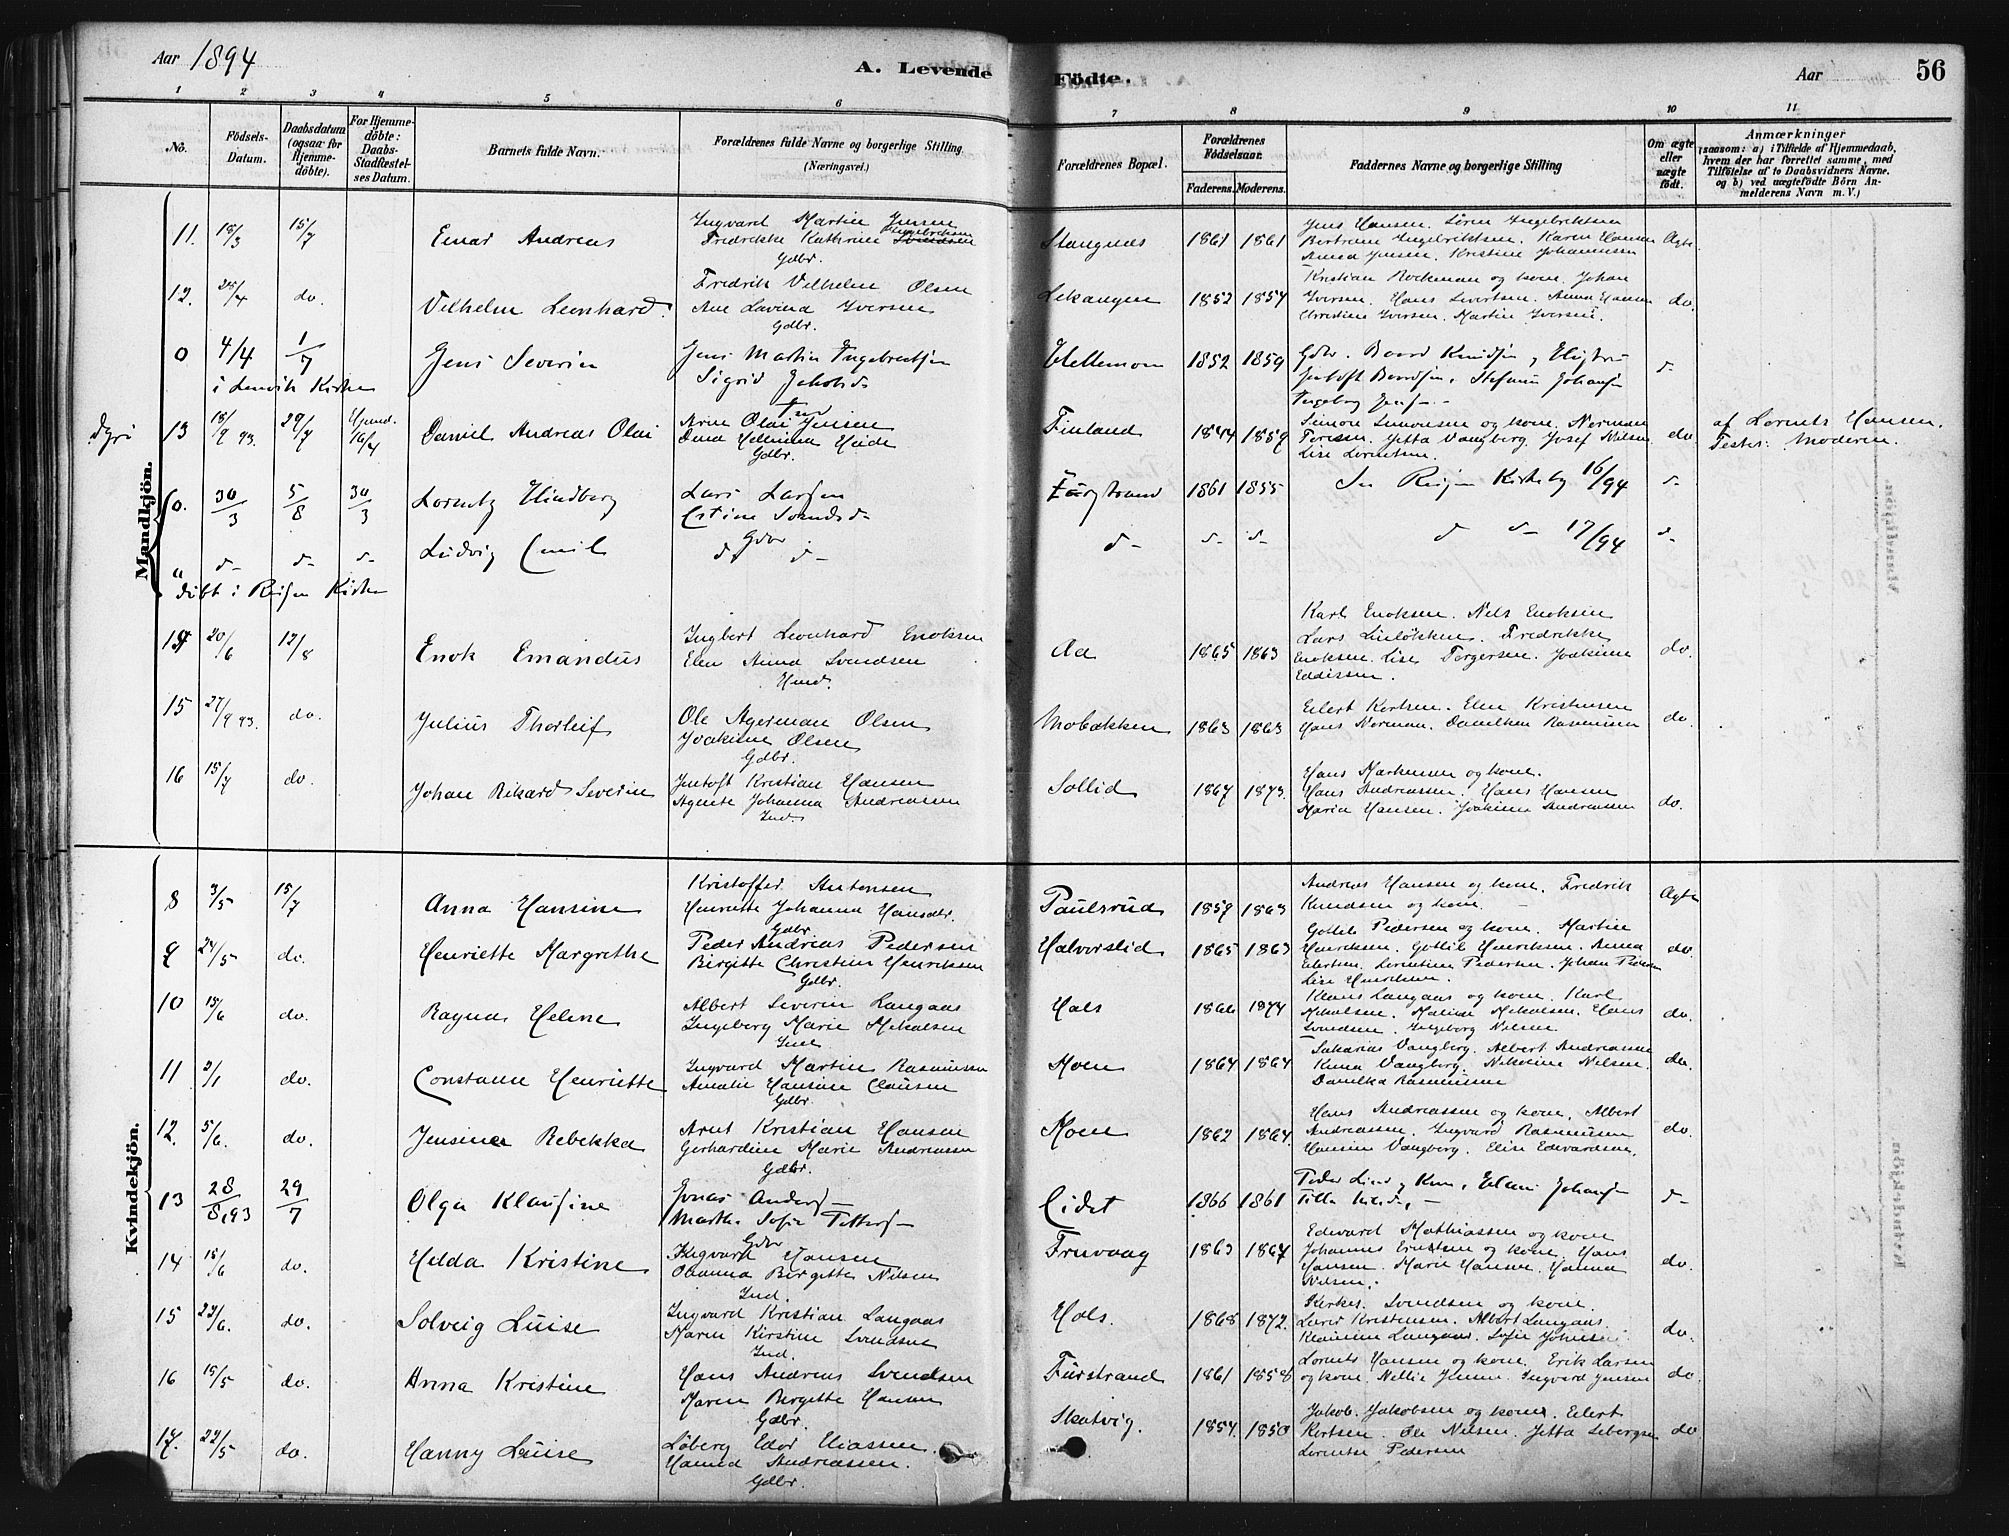 Aar 1894
A. Levende
Födte.
Aar
56
1 2 3 4 5 6 7 8 9 10 11
No.
Födsels-Datum.
Daabsdatum (ogsaa for Hjemmedöbte).
For Hjemmedöbte: Daabs-Stadfæstelses Datum.
Barnets fulde Navn.
Forældrenes fulde Navne og borgerlige Stilling (Næringsvei.)
Forældrenes Bopæl.
Forældrenes Födselsaar.
Faderens. Moderens.
Faddernes Navne og borgerlige Stilling
Om ægte eller uægte födt.
Anmærkninger
(saasom: a) i Tilfælde af Hjemmedaab, hvem der har forrettet samme, med Tilföielse af to Daabsvidners Navne, og b) ved uægtefödte Börn Anmelderens Navn m. V.)
Mandkjön.
11. 18/3 15/7 Einar Andreas
Ingvard Martin Jensen
Fredrikke Kathrine Ingebriktsen
Gdbr.
Stangnes 1861 1861
Jens Hansen. Sören Ingebriktsen
Bertreus Ingebriktsen. Karen Hansen
Anna Jensen. Kristine Johannessen
Ægte
12. 25/4 do. Vilhelm Leonhard.
Fredrik Vilhelm Olsen
Ane Lavina Iversen
Gdbr.
Lekangen 1852 1854
Kristian Rockman og kone. Johan
Iversen. Hans Sivertsen. Anna Hansen
Christine Iversen. Martin Iversen.
do.
0 4/4 1/7 Jens Severin
i Lenvik Kirke
Jens Martin Ingebrectsen
Sigrid Jakobsd
1852 1859
13 18/9 93. 29/7 Hjemd. 16/4 Daniel Andreas Olai
Arne Olai Jensen
Gdbr.
Finland 1844 1859
Simon Simonsen og kone. Norman
Jetta Vangberg. Josef Nilsen
Lise Lorentsen.
do.
af Lorents Hansen.
Testes: Moderen.
0. 30/3 5/8 30/3 Lorentz Hindberg
Lars Larsen
Gdbr
1861 1855
Se Reisen Kirkebg 16/94
" d- d- d- Ludvig Emil
d- d- d- 17/94 d-
døbt i Reisen Kirke
14 20/6 12/8 Enok Emandus
Ingbert Leonhard Enoksen
Elen Anna Svendsen
Aa 1865 1863
Karl Enoksen. Nels Enoksen
Lars Linløkken. Fredrikke
Enoksen. Lise Torgersen. Joakime
Eddissen.
do.
15 27/9 93. do. Julius Thorleif
Ole Agerman Olsen
Joakime Olsen
Gdbr.
Mobakken 1863 1863
Eilert Kortsen. Elen Kristensen
Hans Norman. Danilken Rasmussen
do.
16 15/7 do. Johan Rikard Severin
Jentoft Kristian Hansen
Agnete Johanna Andreassen
Ind.
Sollid 1867 1873.
Hans Markussen og kone.
Hans Andreassen. Hans Hansen
Maria Hansen. Joakime Andreassen
do.
Kvindekjön.
8 3/5 15/7 Anna Hansine
Kristoffer Antonsen
Henriette Johanna Hansdtr.
Gdbr
Paulsrud 1859 1863
Andreas Hansen og kone. Fredrik
Knudsen og kone.
Ægte
9 24/5 do. Henriette Margrethe
Peder Andreas Pedersen
Birgitte Christine Henriksen
Gdbr.
Halvorslid 1865 1863
Gottlib Pedersen og kone. Martin
Henriksen. Gottlib Henriksen. Anna
Eilertsen. Lorentine Pedersen. Johan Pedersen
Lise Henriksen.
do.
10 15/6 do. Ragna Heline
Albert Severin Langaas
Ingeborg Marie Mikalsen
Ind.
Hals 1866 1874
Klaus Langaas og kone. Karl
Mikalsen. Maline Mikalsen. Hans
Svendsen. Ingeborg Nilsen
do.
11 2/1 do. Constance Henriette
Ingvard Martin Rasmussen
Amalie Hansine Clausen
Gdbr.
Moen 1864 1864
Sakarias Vangberg. Albert Andreassen
Kima Vangberg. Nikoline Nilsen.
Danilka Rasmussen
do.
12. 5/6. do. Jensine Rebekka
Arnt Kristian Hansen
Gerhardine Marie Andreassen
Gdbr.
Moen 1862 1864.
Hans Andreassen og kone. Albert
Andreassen. Ingvard Rasmussen
Hansine Vangberg. Elise Edvardsen.
do.
13 28/8,93 29/7 Olga Klausine
Jonas Anders
Gdbr
Eidet 1866 1861
d-
14 18/6 do. Hilda Kristine
Ingvard Hansen
Oluanna Birgitte Nilsen
Ind.
Truvaag 1863 1867
Edvard Mathiassen og kone
Johannes Erntsen og kone. Hans
Hansen. Marie Hansen. Hanna
Nilsen.
do.
15 22/6. do. Solveig Luise
Ingvard Kristian Langaas
Maren Kirstine Svendsen
Ind.
Hals. 1868 1872.
Kerkes. Svendsen og kone.
Kristensen. Albert Langaas.
Klausine Langaas. Sofie Johnsen
do.
16 15/5 do. Anna Kristine
Hans Andreas Svendsen
Maren Bergette Hansen
Gdbr.
Furstrand 1861 1858
Lorents Hansen og kone. Erik Larsen
og kone. Nellie Jensen. Ingvard Jensen
do.
17. 22/5 do. Hanny Luise
Løberg Edor Eliassen.
Hanna Andreassen.
Gdbr.
Skatvig. 1854. 1850
Jakob Jakobsen og kone. Eilert
Kortsen. Ole Nilsen. Jetta Sebergsen
Lorentse Pedersen
do